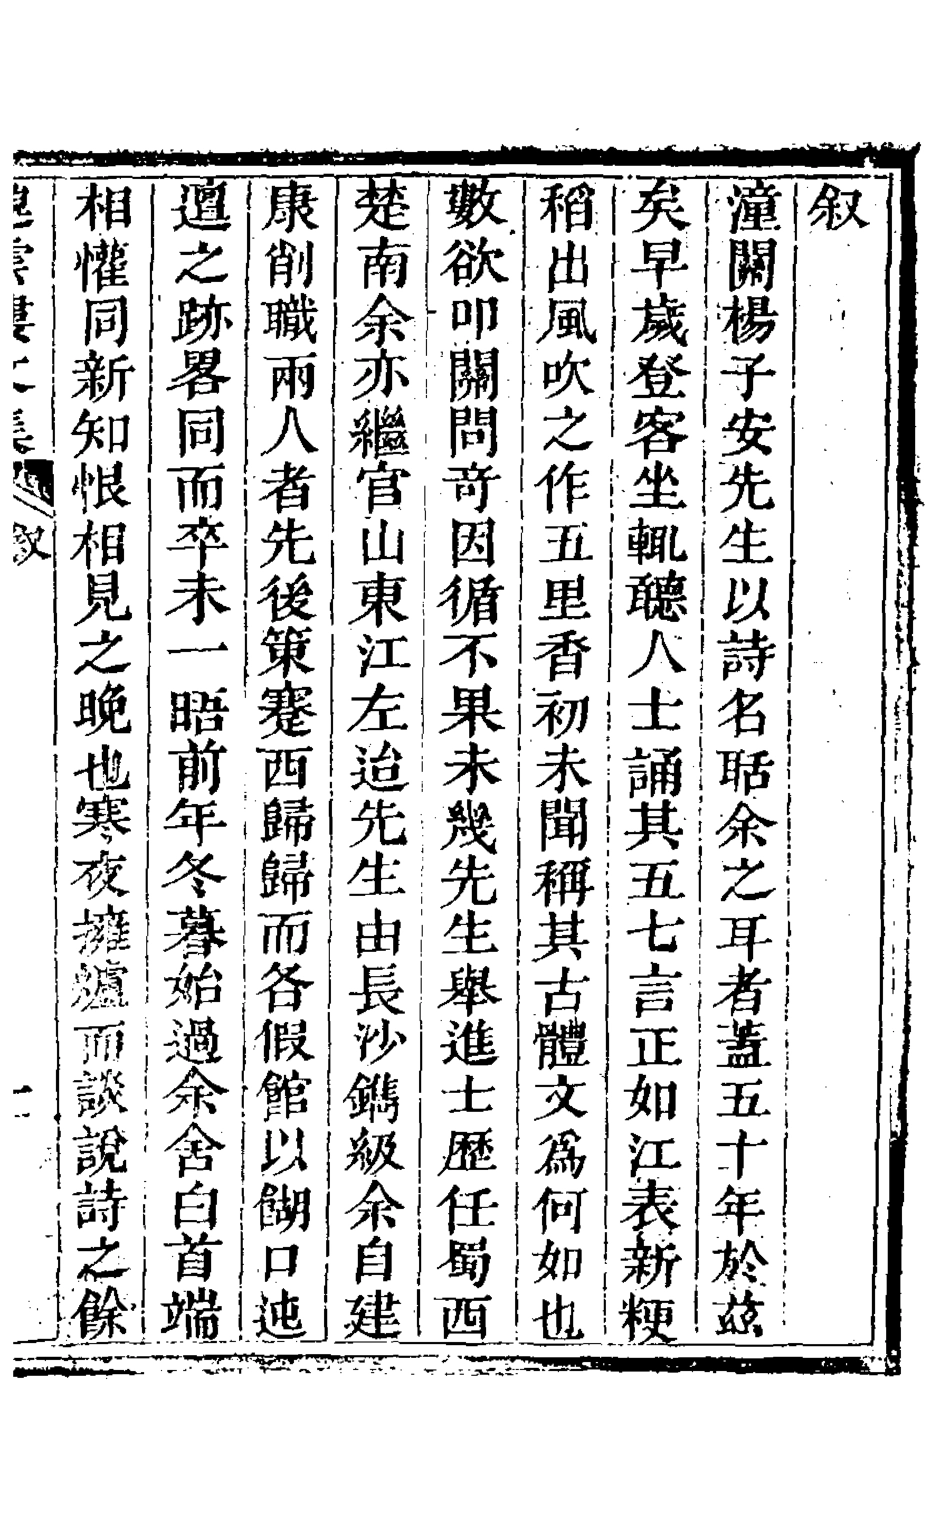 叙
潼關楊子安先生以詩名聒余之耳者蓋五十年於茲
矣早歲登客坐輒聽人士誦其五七言正如江表新粳
稻出風吹之作五里香初未聞稱其古體文爲何如也
數欲叩關問奇因循不果未幾先生舉進士歷任蜀西
楚南余亦繼官山東江左迨先生由長沙鐫級余自建
康削職兩人者先後策蹇西歸歸而各假館以餬口迍
邅之跡畧同而卒未一晤前年冬暮始過余舍白首端
相懽同新知恨相見之晚也寒夜擁爐而談說詩之餘
叙
一